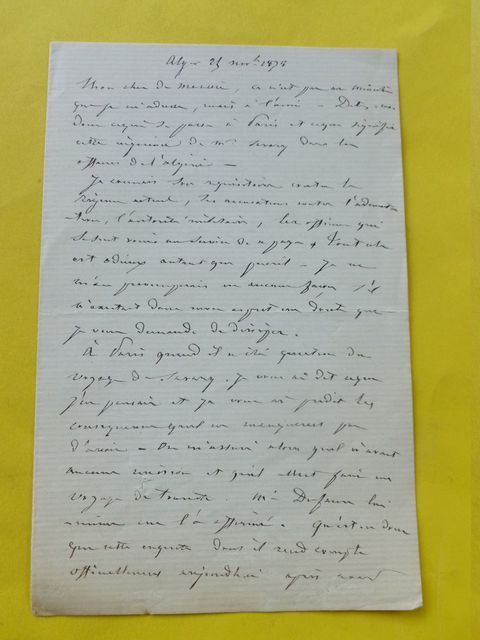 Alger 25 nov. 1878
Mon cher de ce n'est pas au ministre
que je m'adresse, mais à l'ami - Dites-moi
donc ce qui se passe à Paris et ce que signifie
cette de Mr Savary dans les
affaires de l'Algérie -
Je connais son réquisitoire contre le
Régime actuel, les accusations contre l'administra-
-tion, l'autorité militaire, les qui
se sont voués au service de ce pays & Tout cela
est odieux autant que puéril - Je ne
m'en préoccuperais en aucune façon s'il
n'existait dans mon esprit un doute que
je vous demande de dissiper.
À Paris quand il a été question du
voyage de Savary, je vous ai dit ce que
j'en pensais et je vous ai prédit les
conséquences qu'il ne manquerait pas
d'avoir - On m'assura alors qu'il n'avait
aucune mission et qu'il allait faire un
voyage de touriste. Mr Dufaure lui-
-même me l'a affirmé. Qu'est-ce donc
que cette enquête dont il rend compte
officiellement aujourd'hui après avoir